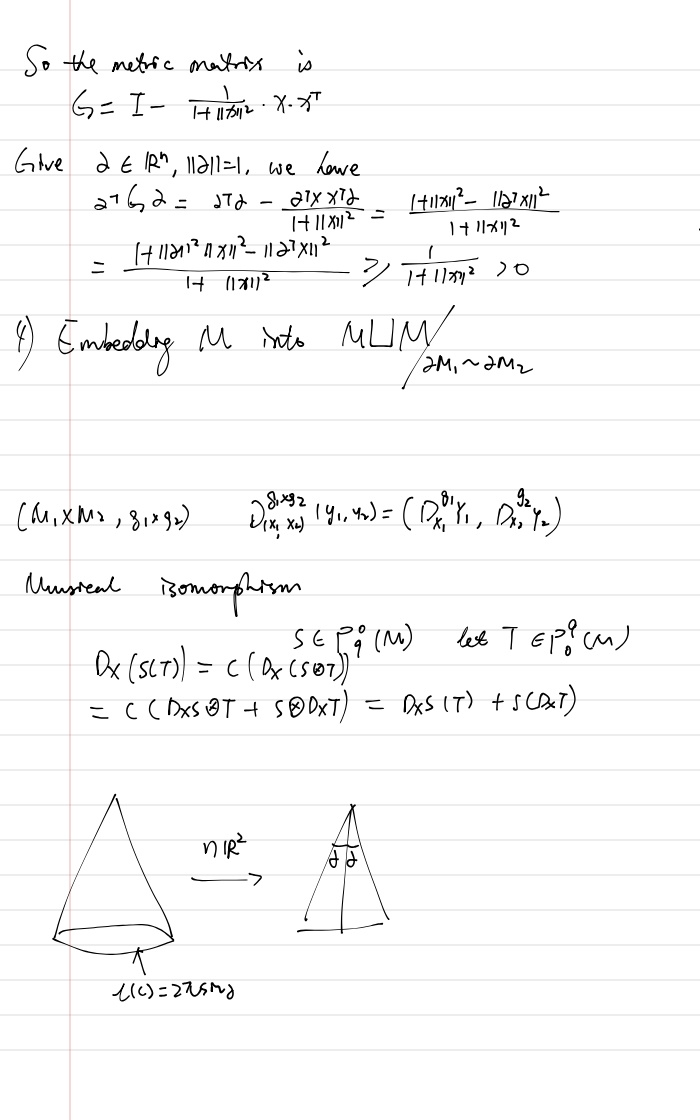 So the metric matrix is
G = I - \frac{1}{1+||x||^2} \cdot x \cdot x^T
Give ∂ ∈ R^n, ||∂||=1, we have
∂^T G ∂ = ∂^T∂ - \frac{∂^T x x^T ∂}{1+||x||^2} = \frac{1+||x||^2 - ||∂^T x||^2}{1+||x||^2}
= \frac{1+||∂||^2 ||x||^2 - ||∂^T x||^2}{1+ ||x||^2} ≥ \frac{1}{1+||x||^2} > 0
4) Embedding M into M⊔M/∂M_1~∂M_2
(M_1×M_2, g_1×g_2) D^{g_1×g_2}_{(x_1, x_2)} (y_1, y_2) = (D^{g_1}_{x_1} Y_1, D^{g_2}_{x_2} Y_2)
Musical isomorphism
S ∈ P^0_q (M) let T ∈ P^q_0 (M)
D_X (S(T)) = C (D_X (S⊗T))
= C (D_X S ⊗ T + S ⊗ D_X T) = D_X S (T) + S(D_X T)
∩ R^2
∂ ∂
l(c) = 2π sin ∂